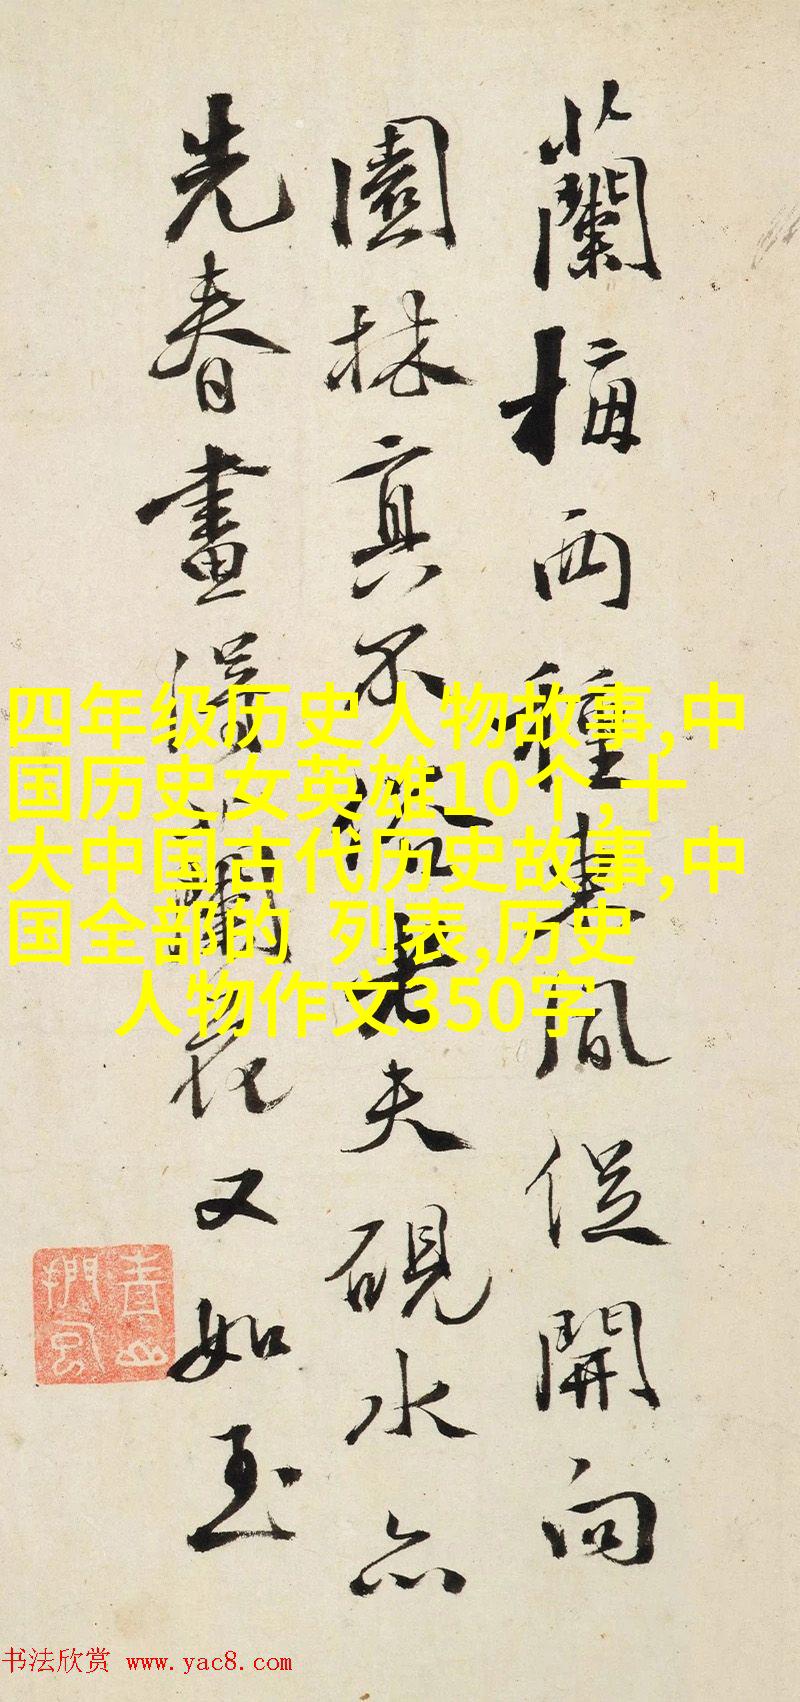 蘭梅两種東風促開向
園林真不俗老夫硯水亦
先春畫得蘭花又如玉
四年级历史人物故事,中
国历史女英雄10个,十
大中国古代历史故事,中
国全部的 列表,历史
人物作文350字
书法欣赏 www.yac8.com